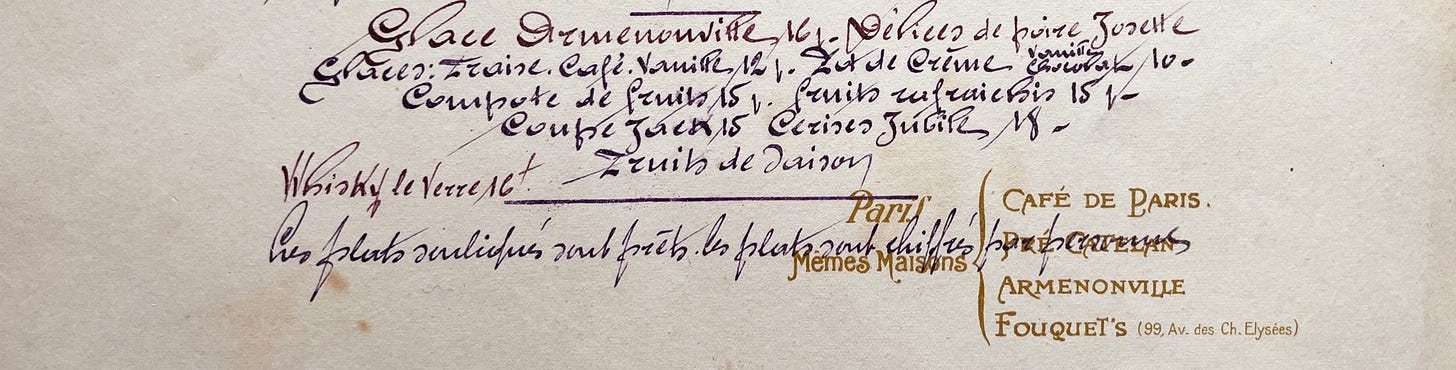 Glace Armenonville 16f. Délices de poire Josette
Glaces: Fraise. Café. Vanille 12f. Pot de Crème Vanille Chocolat 10-
Compote de fruits 15f. fruits rafraichis 15f-
Coupe Jack 15 Cerises Jubilé 18-
Fruits de Saison
Whisky le verre 16f
Les plats soulignés sont prêts. les plats sont chiffrés par personnes
Paris
Mêmes Maisons
CAFÉ DE PARIS.
PRÉ CATELAN
ARMENONVILLE
FOUQUET'S (99, Av. des Ch. Elysées)